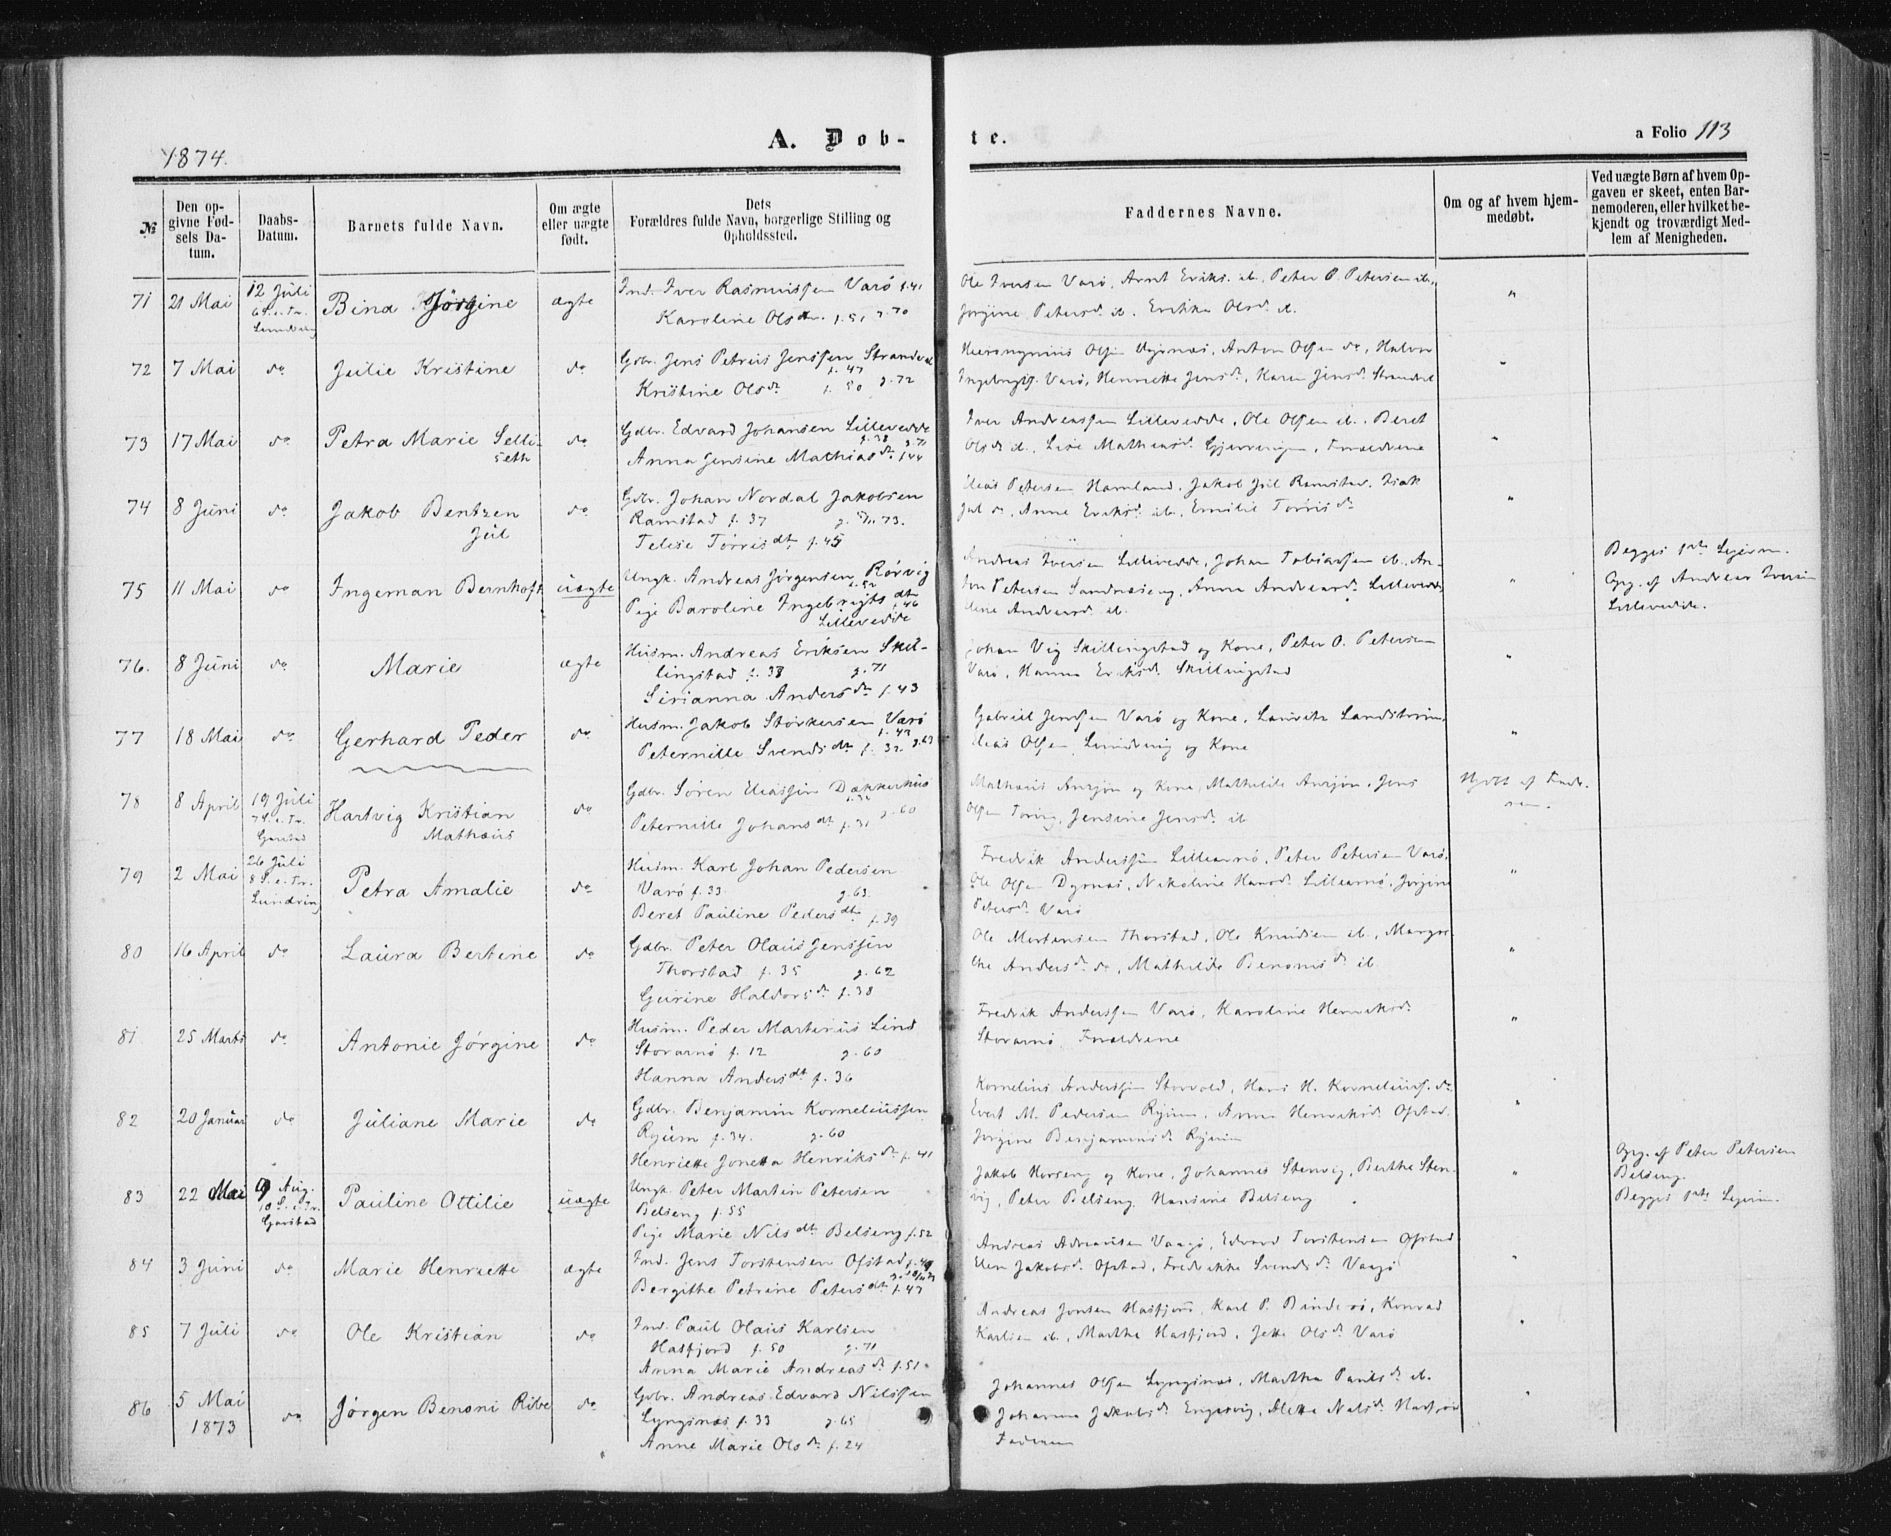 1874.
A. Døb-
te.
a Folio 113
№
Den op-
givne Fød-
sels Da-
tum.
Daabs-
Datum.
Barnets fulde Navn.
Om ægte
eller uægte
født.
Dets
Forældres fulde Navn, borgerlige Stilling og
Opholdssted.
Faddernes Navne.
Om og af hvem hjem-
medøbt.
Ved uægte Børn af hvem Op-
gaven er skeet, enten Bar-
nemoderen, eller hvilket be-
kjendt og troværdigt Med-
lem af Menigheden.
71 21 Mai 12 Juli
6 S. e. Tr.
Lundring
Bina Jørgine ægte
Ind. Iver Rasmussen Varø f. 41
Karoline Olsdtr. f. 51 g. 70
Ole Iversen Varø, Arnt Eriks. ib., Peter P. Petersen ib.,
Jørgine Petersd. ib. Erikka Olsd. ib.
"
72 7 Mai do Julie Kristine do
Gdbr. Jens Petrus Jenssen
f. 47
Kristine Olsd. f. 50 g. 72
Hieronymus Olsen, Anton Olsen do, Halvor
Ingebrigts. Varø, Henriette Jensd., Karen Jensd.
"
73 17 Mai do Petra Marie Selli-
seth do
Gdbr. Edvard Johansen Lillevedde
f. 38 g. 71
Anna Jensine Mathiasd. f. 44
Iver Andreassen Lillevedde, Ole Olsen ib. Beret
Olsd. ib., Lise Mathiasd., Forældrene
"
74 8 Juni do Jakob Bentzen
Jul do
Gdbr. Johan Nordal Jakobsen
Ramstad f. 37 g. 73.
Telise Tørrisdt. f. 45
Elias Petersen Hamland, Jakob Jul Ramstad, Isak
Jul do, Anne Eriksd. ib., Emilie Tørrisd.
"
75 11 Mai do Ingeman Bernhoft uægte
Ungk. Andreas Jørgensen Rørvig
f. 52
Pige Baroline Ingebrigtsdt.
f. 46
Lillevedde
Andreas Iversen Lillevedde, Johan Tobiassen ib. An-
ton Petersen, Anna Andreasd. Lillevedde
Andreasd. ib.
"
Begges 1ste Leierm.
Opg. af Andreas Iversen
Lillevedde.
76. 8 Juni do Marie ægte
Husm. Andreas Eriksen Skil-
lingstad f. 38 g. 71
Sirianna Andersd. f. 43
Johan Vig Skillingstad og Kone, Peter O. Petersen
Varø, Hanna Eriksd. Skillingstad
"
77 18 Mai do Gerhard Peder do
Husm. Jakob Størkersen Varø
f. 42
Peternille Svendsdt. f. 32 g. 63
Gabriel Jenssen Varø og Kone, Lauritz Landstrøm,
Elias Olsen Lundring og Kone
"
78 8 April 19 Juli
7 S. e. Tr.
Garstad
Hartvig Kristian
Mathæus do
Gdbr. Søren Eliassen Dækkerhus
f. 32
Peternille Johansdt. f. 31 g. 60
Mathæus Anzjøn og Kone, Mathilde Anzjøn, Jens
Olsen, Jensine Jensd. ib
Hjdt. af Fade-
ren.
79 2 Mai 26 Juli
8 S. e. Tr.
Lundring
Petra Amalie do
Husm. Karl Johan Pedersen
Varø f. 33 g. 63.
Beret Pauline Pedersdt. f. 39
Fredrik Anderssen Lillearnø, Peter Petersen Varø,
Ole Olsen Dyrnæs, Nikoline Hansd. Lillearnø, Jørgine
Petersd. Varø
"
80 16 April do Laura Bertine do
Gdbr. Peter Olaus Jenssen
Thorstad f. 35 g. 62
Gurine Haldorsd. f. 38
Ole Mortensen Thorstad, Ole Knudsen ib., Margre-
the Andersd. do, Mathilde Benonisd. ib
"
81. 25 Marts do Antonie Jørgine do
Husm. Peder Martinus Lind
Storarnø f. 12 g. 60
Hanna Andersdt. f. 36
Fredrik Anderssen Varø, Karoline Henriksd.
Storarnø, Forældrene
"
82 20 Januar do Juliane Marie do
Gdbr. Benjamin Korneliussen
Ryum f. 34. g. 60
Henriette Jonetta Henriksd. f. 41
Kornelius Anderssen Storvold, Hans H. Korneliuss. do
Evert M. Pedersen Ryum, Anne Henriksd. Ofstad,
Jørgine Benjaminsd. Ryum
"
83 22 Mai 9 Aug.
10 S. e. Tr.
Garstad
Pauline Ottilie uægte
Ungk. Peter Martin Petersen
Belseng f. 55
Pige Marie Nilsdt. Belseng f. 52
Jakob Horseng og Kone, Johannes Stenvig, Berthe Sten-
vig, Peter Belseng Hansine Belseng
"
Opg. af Peter Petersen
Belseng.
Begges 1ste Leierm.
84 3 Juni do Marie Henriette ægte
Ind. Jens Torstensen Ofstad f. 49
Bergithe Petrine Petersdt. f. 47
Andreas Adriansen Vaagø, Edvard Torstensen Ofstad
Elen Jakobsd. Ofstad, Fredrikke Svendsd. Vaagø
"
85 7 Juli do Ole Kristian do
Ind. Paul Olaus Karlsen
Hasfjord f. 50 g. 71
Anna Marie Andreasd. f. 51.
Andreas Jonsen Hasfjord, Karl P. Binderø, Konrad
Karlsen ib., Martha Hasfjord, Jette Olsd. Varø
"
86 5 Mai
1873 do Jørgen Benoni Ribe do
Gdbr. Andreas Edvard Nilssen
Lyngsnæs f. 33 g. 65
Anne Marie Olsd. f. 24
Johannes Olsen Lyngsnæs, Martha Paulsd. ib.
Johanna Jakobsd. Engesvig, Alette Nilsd.
Faderen
"